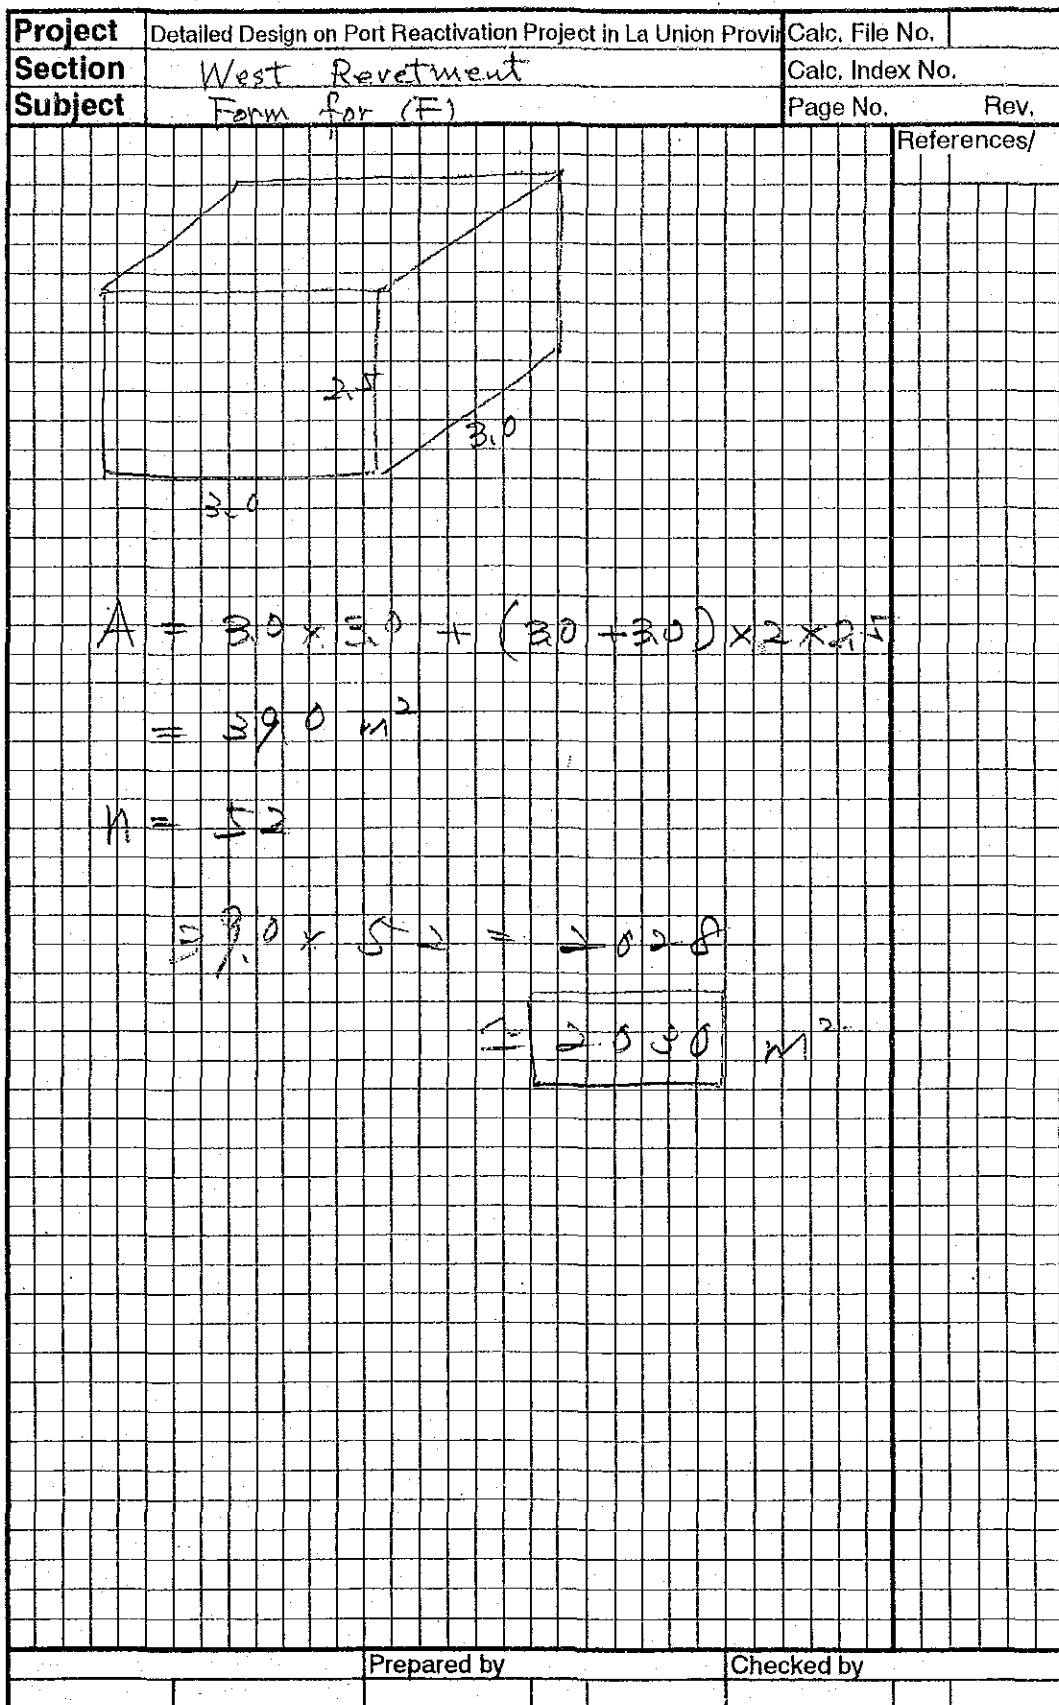 Project Detailed Design on Port Reactivation Project in La Union Provin Calc. File No.
Section West Revetment Calc. Index No.
Subject Form for (F) Page No. Rev.
References/
2.5
3.0
3.0
A = 3.0 × 3.0 + (3.0 + 3.0) × 2 × 2.5
= 39.0 m²
n = 52
39.0 × 52 = 2028
≒ 2030 m²
Prepared by Checked by